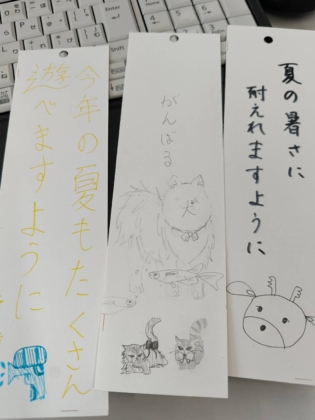 今年の夏もたくさん
遊べますように
がんばる
夏の暑さに
耐えれますように